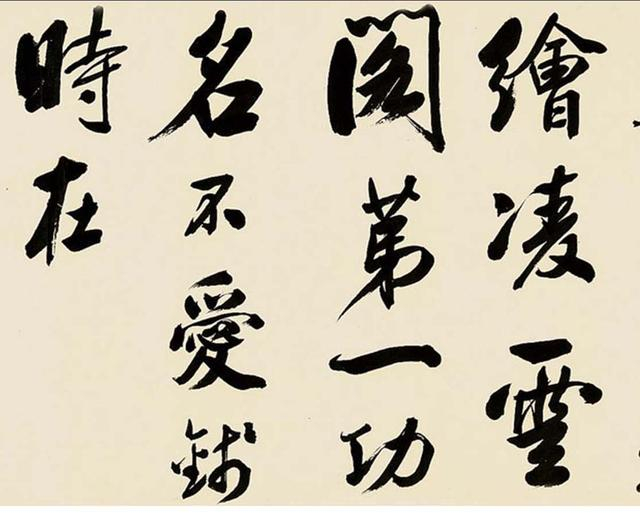 繪凌
閣第一功
名不愛錢
時在